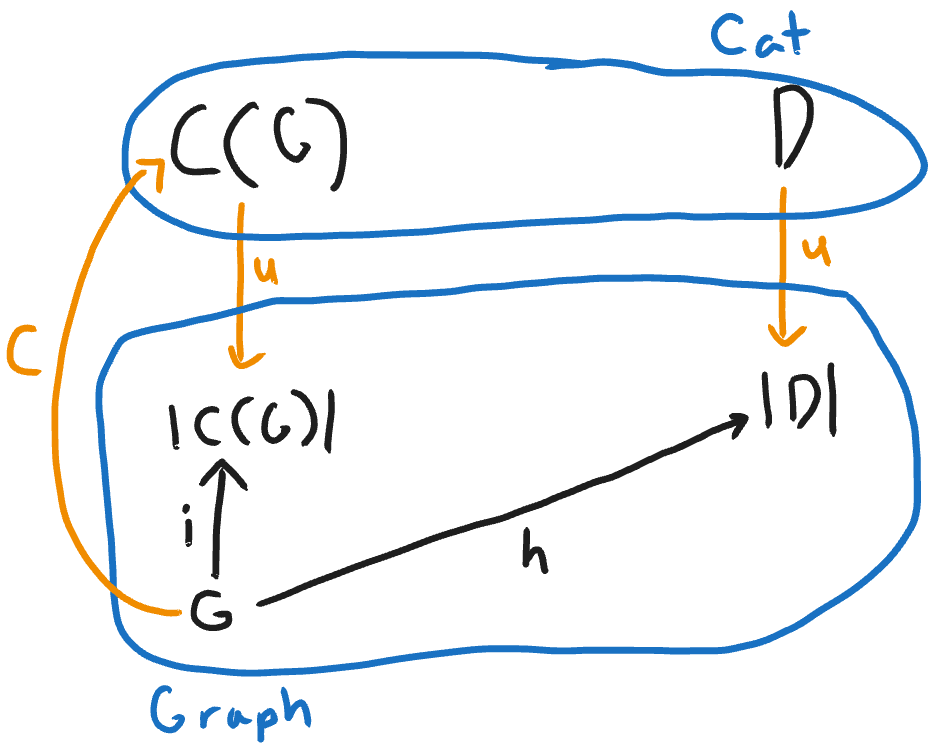 Cat
C(G) D
u u
C
|C(G)| |D|
i
h
G
Graph